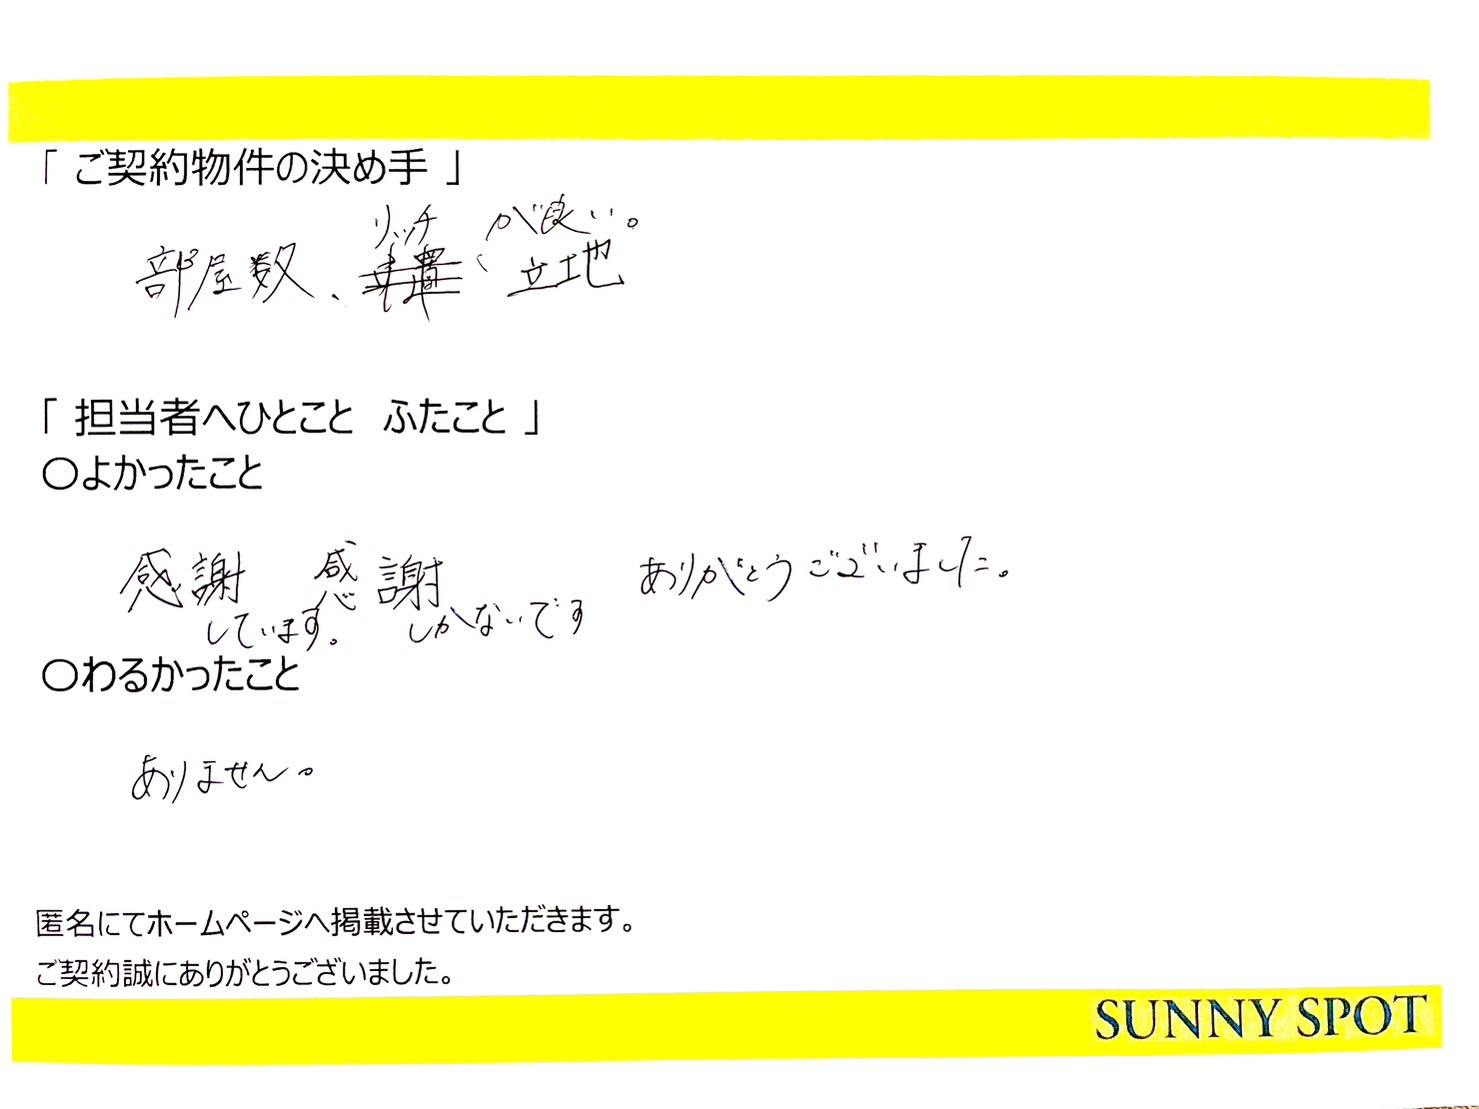 「 ご契約物件の決め手 」
リッチ が良い。
部屋数、 、立地
「 担当者へひとこと ふたこと 」
○よかったこと
感謝 感謝 ありがとうございました。
しています。 しかないです
○わるかったこと
ありません。
匿名にてホームページへ掲載させていただきます。
ご契約誠にありがとうございました。
SUNNY SPOT